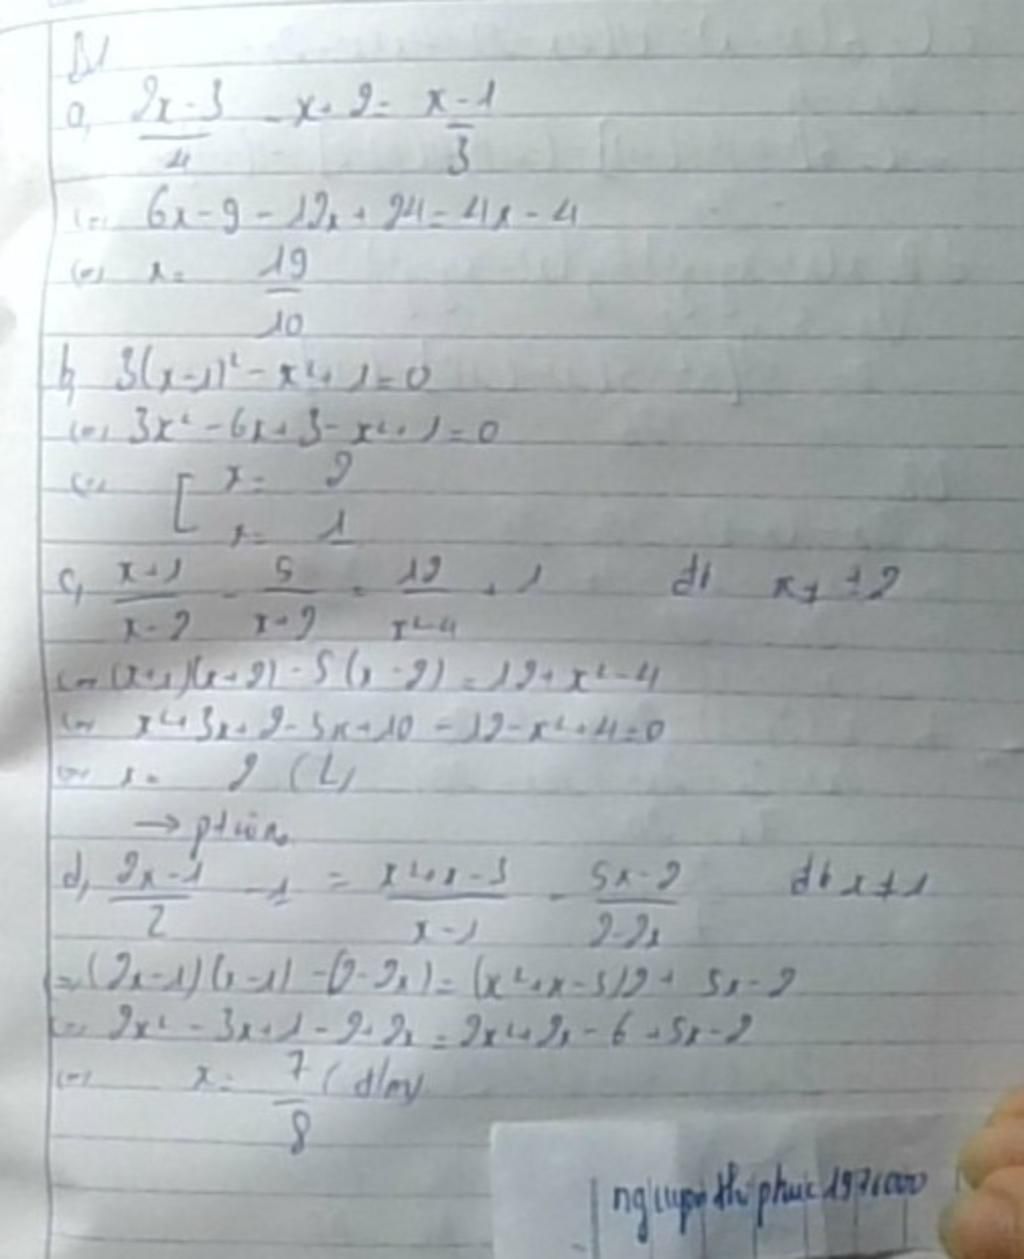 B1
a, (2x-3)/4 - x + 2 = (x-1)/3
<=> 6x - 9 - 12x + 24 = 4x - 4
<=> x = 19/10
b, 3(x-1)² - x² + 1 = 0
<=> 3x² - 6x + 3 - x² + 1 = 0
<=> [ x = 2
x = 1
c, (x+1)/(x-2) - 5/(x+2) = 12/(x²-4) + 1 đk x ≠ ±2
<=> (x+1)(x+2) - 5(x-2) = 12 + x² - 4
<=> x² + 3x + 2 - 5x + 10 - 12 - x² + 4 = 0
<=> x = 2 (L)
→ ptvn
d, (2x-1)/2 - 1 = (x²+x-3)/(x-1) - (5x-2)/(2-2x) đk x ≠ 1
= (2x-1)(x-1) - (2-2x) = (x²+x-3)2 + 5x-2
= 2x² - 3x + 1 - 2 + 2x = 2x² + 2x - 6 + 5x - 2
<=> x = 7/8 (t/m)